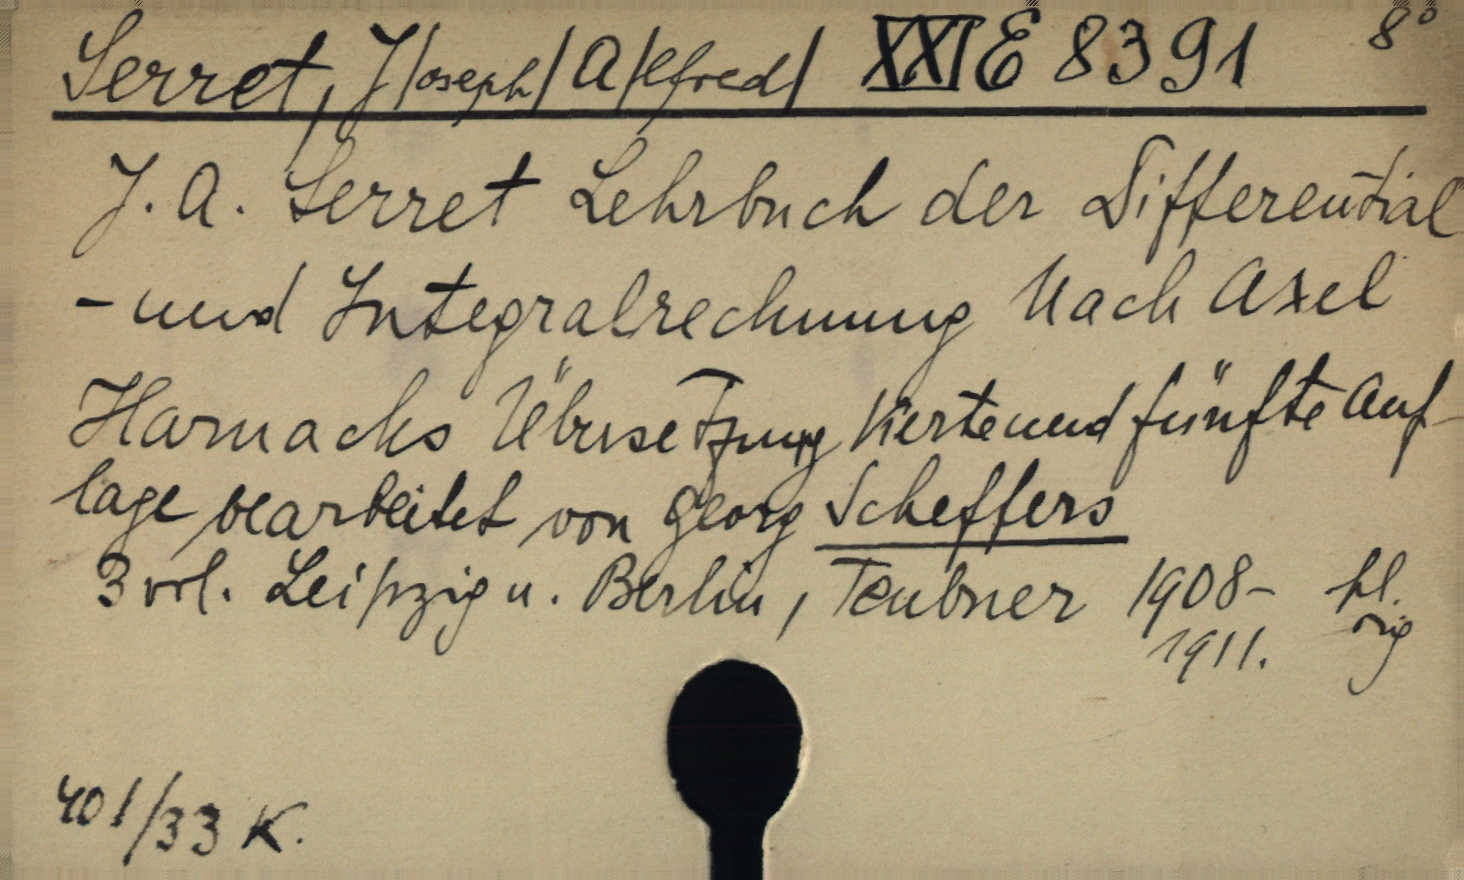 Serret, J/oseph/ A/lfred/ XXI E 8391 8°
J. A. Serret Lehrbuch der Differential
- und Integralrechnung Nach Axel
Harnacks Übersetzung Vierte und fünfte Auf-
lage bearbeitet von Georg Scheffers
3 vol. Leipzig u. Berlin, Teubner 1908- pl.
1911. orig
401/33 K.